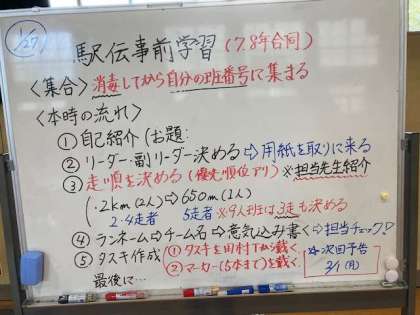 1/27
駅伝事前学習(7.8年合同)
<集合>消毒してから自分の班番号に集まる
<本時の流れ>
①自己紹介(お題:
②リーダー・副リーダー決める⇨用紙を取りに来る
③走順を決める(優先順位アリ)※担当先生紹介
.2km(2人)⇨650m(1人)
2・4走者 5走者 ※9人班は3走も決める
④ランネーム⇨チーム名⇨意気込み書く⇨担当チェック!
⑤タスキ作成 ①タスキを田村Tから戴く。
②マーカー(5本まで)を戴く。
最後に…
☆次回予告
2/1(月)